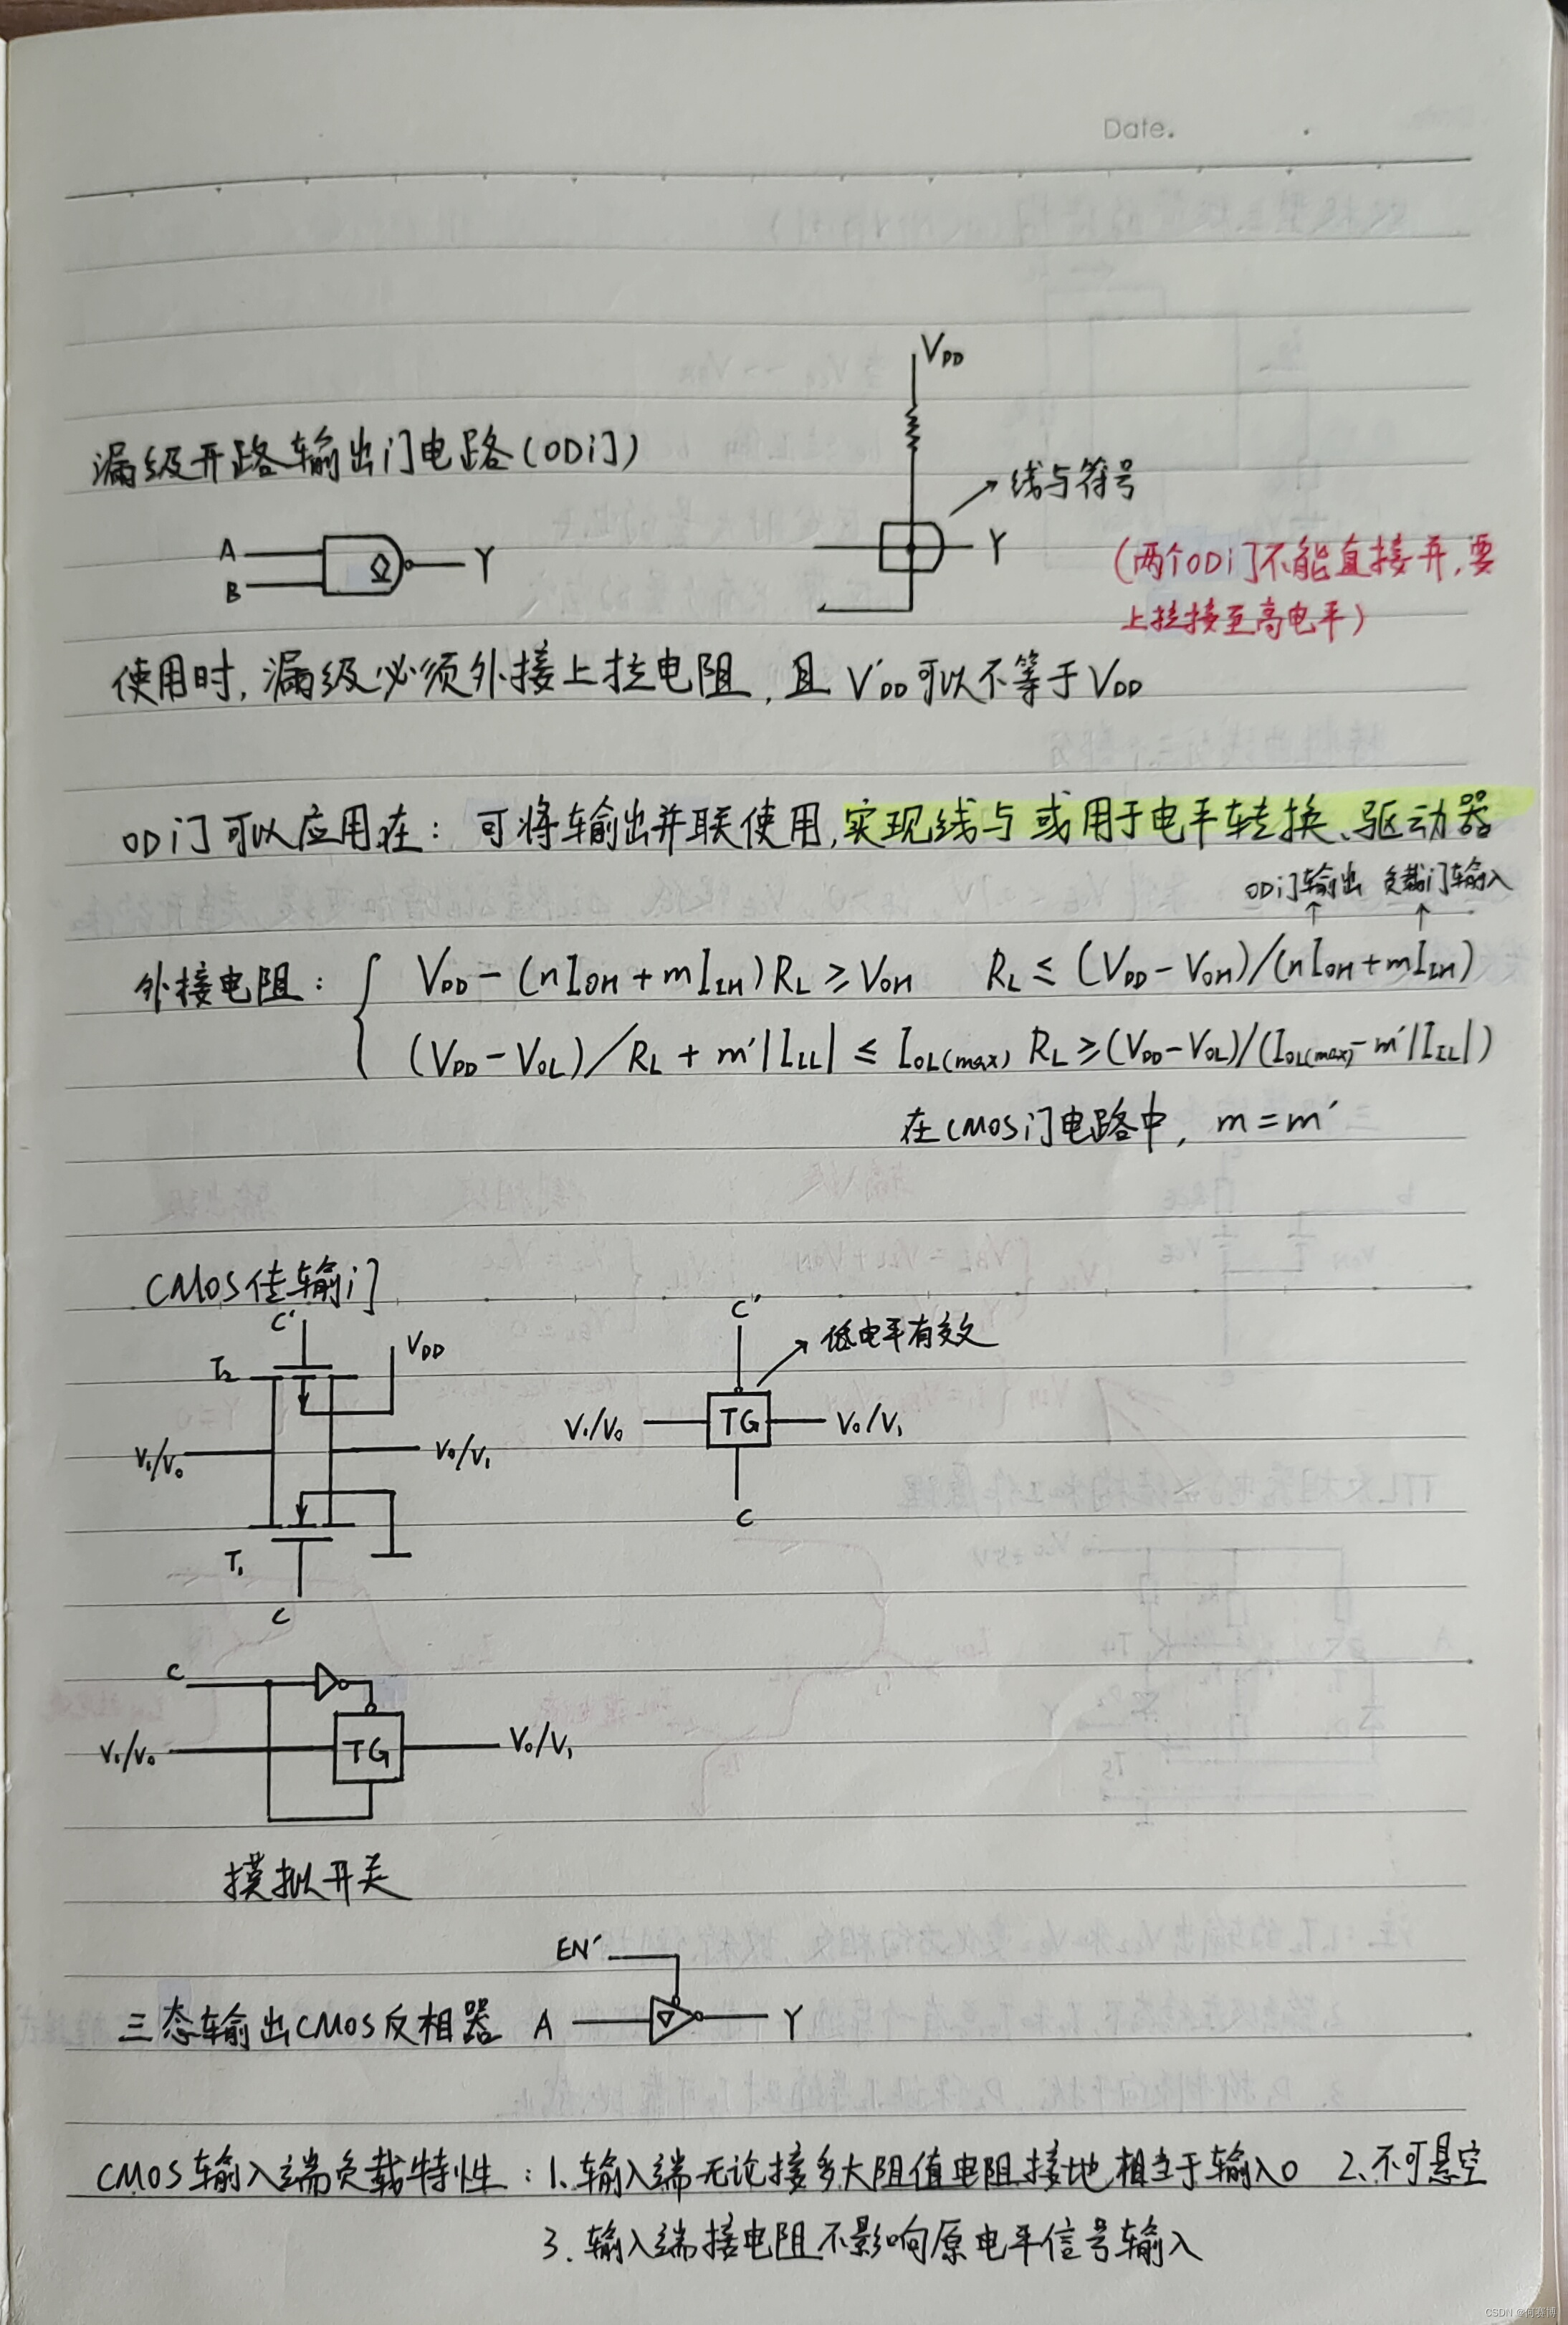 Date.
V_DD
漏级开路输出门电路(OD门)
线与符号
A
B
Y
Y
(两个OD门不能直接并,要
上拉接至高电平)
使用时,漏级必须外接上拉电阻,且 V'_DD 可以不等于 V_DD
OD门可以应用在: 可将输出并联使用,实现线与或用于电平转换、驱动器
OD门输出 负载门输入
外接电阻: V_DD - (nI_OH + mI_IH)R_L ≥ V_OH R_L ≤ (V_DD - V_OH)/(nI_OH + mI_IH)
(V_DD - V_OL)/R_L + m'|I_IL| ≤ I_OL(max) R_L ≥ (V_DD - V_OL)/(I_OL(max) - m'|I_IL|)
在CMOS门电路中, m = m'
CMOS传输门
C'
T₂
V_DD
V_I/V_O
V_O/V_I
T₁
C
C'
低电平有效
V_I/V_O
TG
V_O/V_I
C
C
V_I/V_O
TG
V_O/V_I
模拟开关
EN'
三态输出CMOS反相器 A
Y
CMOS输入端负载特性: 1.输入端无论接多大阻值电阻接地,相当于输入0 2.不可悬空
3.输入端接电阻不影响原电平信号输入
CSDN @何赛博